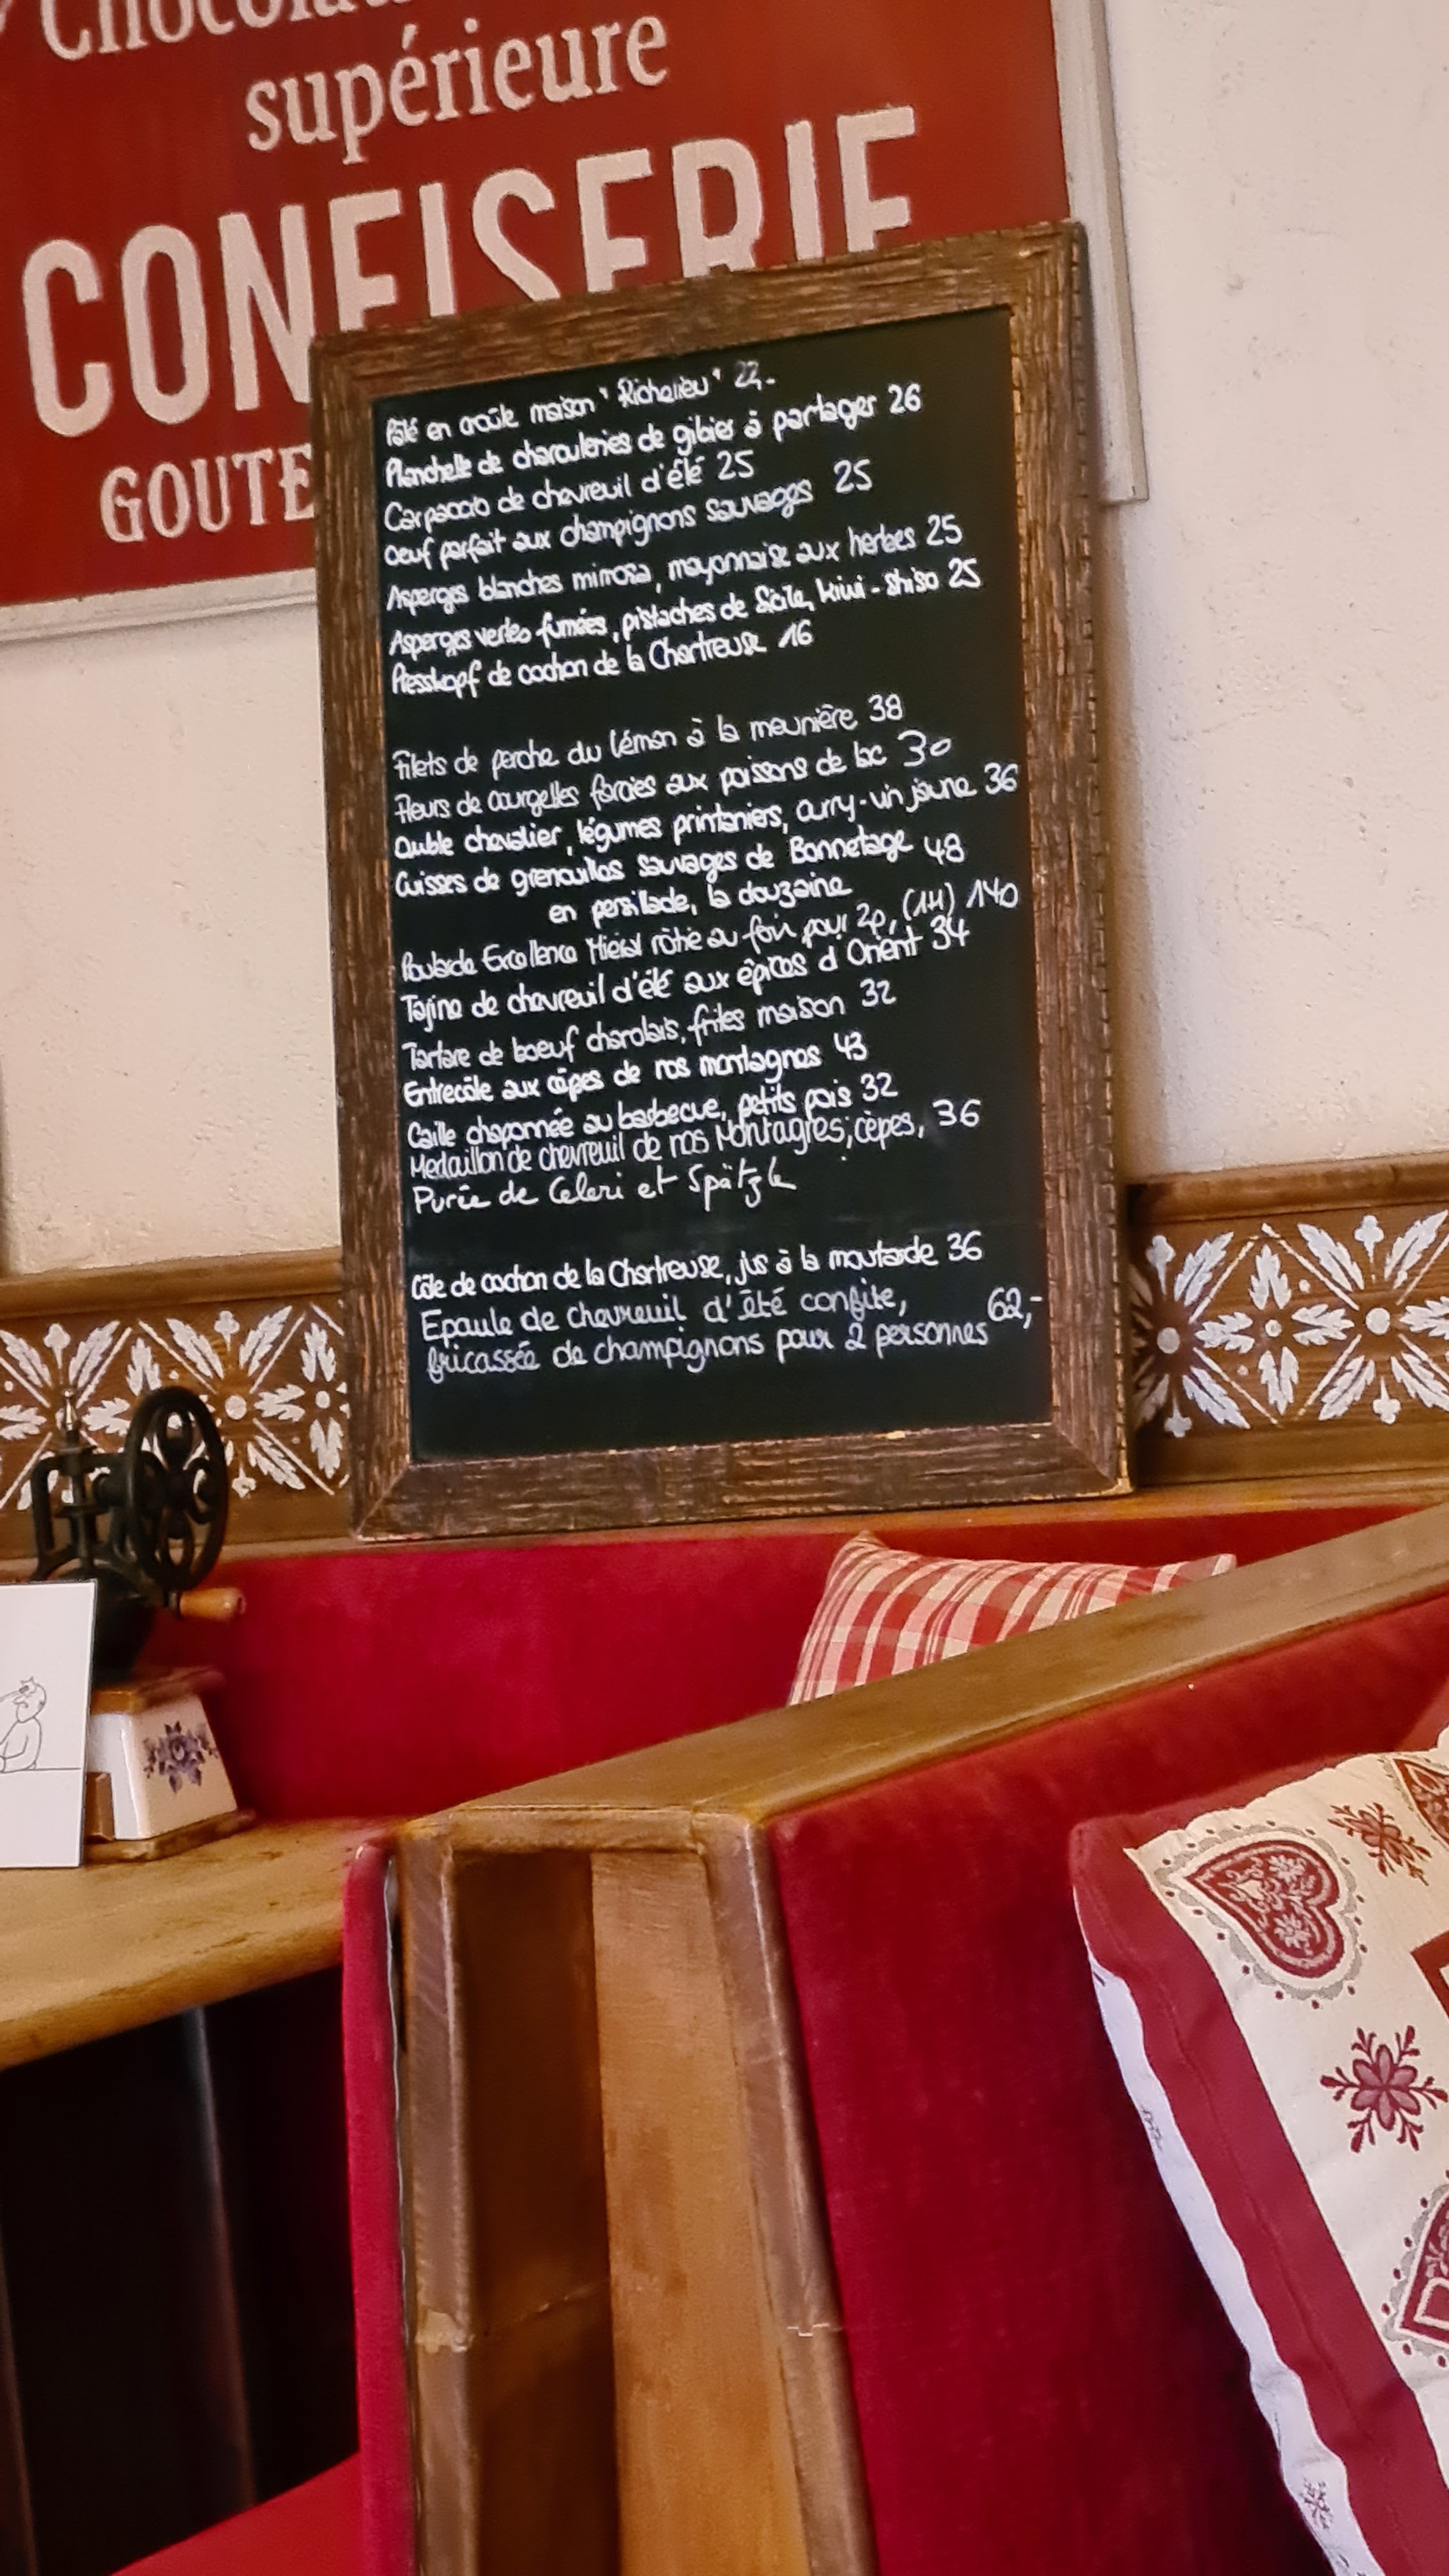 Chocola
supérieure
CONFISERIE
GOUTE
Pâté en croûte maison "Richelieu" 22.-
Planchette de charcuteries de gibier à partager 26
Carpaccio de chevreuil d'été 25
oeuf parfait aux champignons sauvages 25
Asperges blanches mimosa, mayonnaise aux herbes 25
Asperges vertes fumées, pistaches de Sicile, kiwi-shiso 25
Presskopf de cochon de la Chartreuse 16
Filets de perche du Léman à la meunière 38
Fleurs de courgettes farcies aux poissons de lac 30
Omble chevalier, légumes printaniers, curry-vin jaune 36
Cuisses de grenouilles sauvages de Bonnetage 48
en persillade, la douzaine
Poularde Excellence Miéral rôtie au foin pour 2p, (1H) 140
Tajine de chevreuil d'été aux épices d'Orient 34
Tartare de boeuf charolais, frites maison 32
Entrecôte aux cèpes de nos montagnes 43
Caille chaponnée au barbecue, petits pois 32
Medaillon de chevreuil de nos Montagnes, cèpes, 36
Purée de Celeri et Spätzle
Côte de cochon de la Chartreuse, jus à la moutarde 36
Epaule de chevreuil d'été confite, 62,-
fricassée de champignons pour 2 personnes